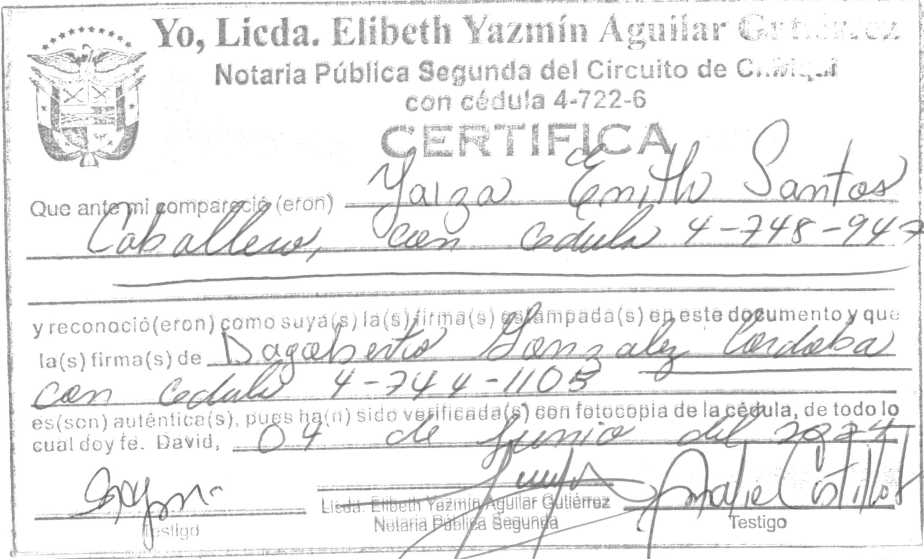 Yo, Licda. Elibeth Yazmín Aguilar Gutiérrez
Notaria Pública Segunda del Circuito de Chiriquí
con cédula 4-722-6
CERTIFICA
Que ante mi compareció (eron) Yaiza Emith Santos
Caballero, con cedula 4-748-947
y reconoció(eron) como suya(s) la(s) firma(s) estampada(s) en este documento y que
la(s) firma(s) de Dagoberto Gonzalez Cordoba
con cedula 4-744-1103
es(son) auténtica(s), pues ha(n) sido verificada(s) con fotocopia de la cédula, de todo lo
cual doy fe. David, 04 de Junio del
Licda. Elibeth Yazmín Aguilar Gutiérrez
Testigo Notaria Pública Segunda Testigo